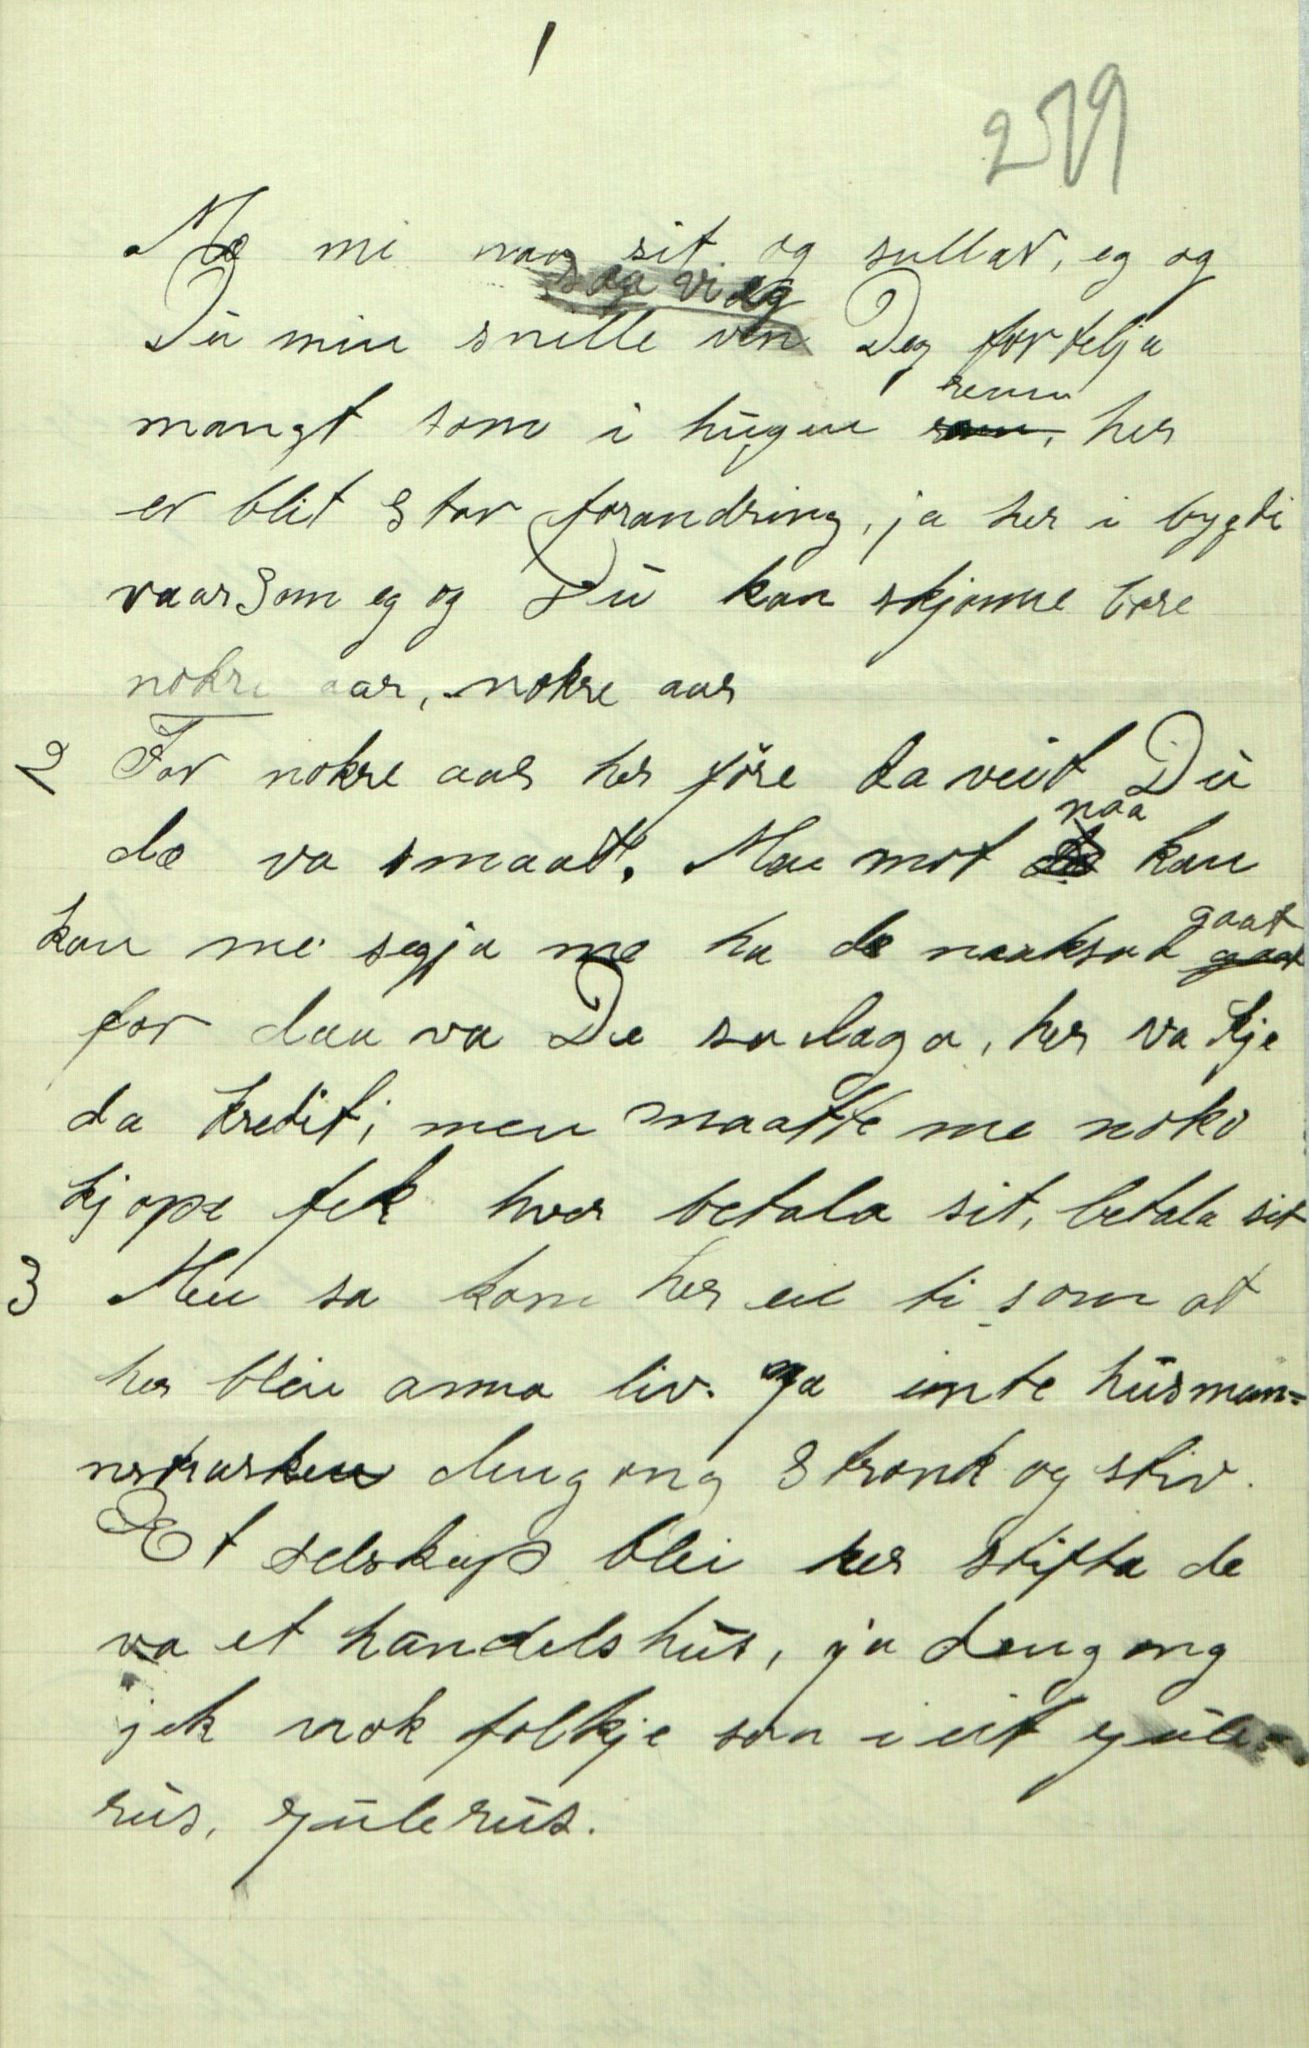 1
279
Mæ mi naa sit og sullar, eg og
saa vi eg
Du min snille ven Deg fortelja
renn
mangt som i hugen renn, her
er blit stor forandring, ja her i bygdi
vaar som eg og Du kan skjønne bære
nokre aar, nokre aar
2 For nokre aar her føre da veit Du
naa
dæ va smaat. Men mot kan
gaat
kan me segja me ha de naaksaa gaat
for daa va De so laga, her va kje
da kredit; men maatte me noko
kjøpe fek hver betala sit, betala sit
3 Men sa kom her ei ti som at
her bleiv anna liv. Ja inte husman=
neskarken dengong stront og stiv.
Et selskap blei her stifta de
va et handelshus, ja dengong
jek nok folkje son i eit gule-
rus, gulerus.